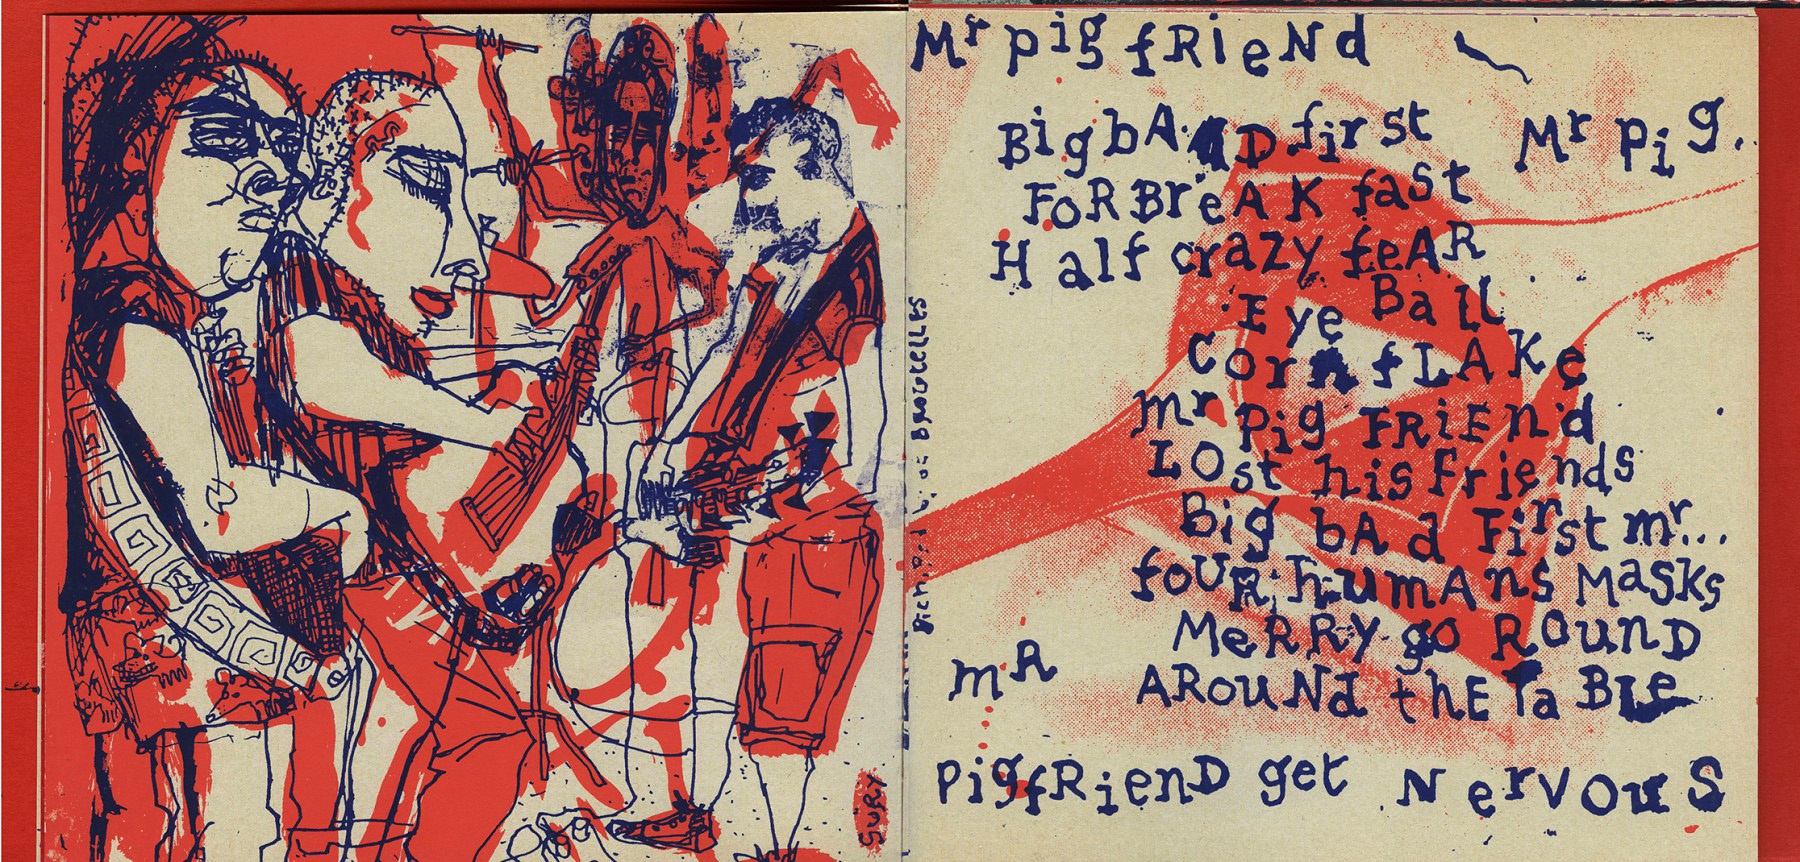 Mr pig fRieNd
Big bA D first
Mr pig.
FoR BreAK fast
Half crazy feAR
Eye Ball
Corn fLAKe
mr pig FRiENd
LOst his Friends
Big bAd First mr...
foUR humAns Masks
MeRRy go ROunD
mR
ARouNd thE TaBLe
pigfRienD get NervouS
SURY